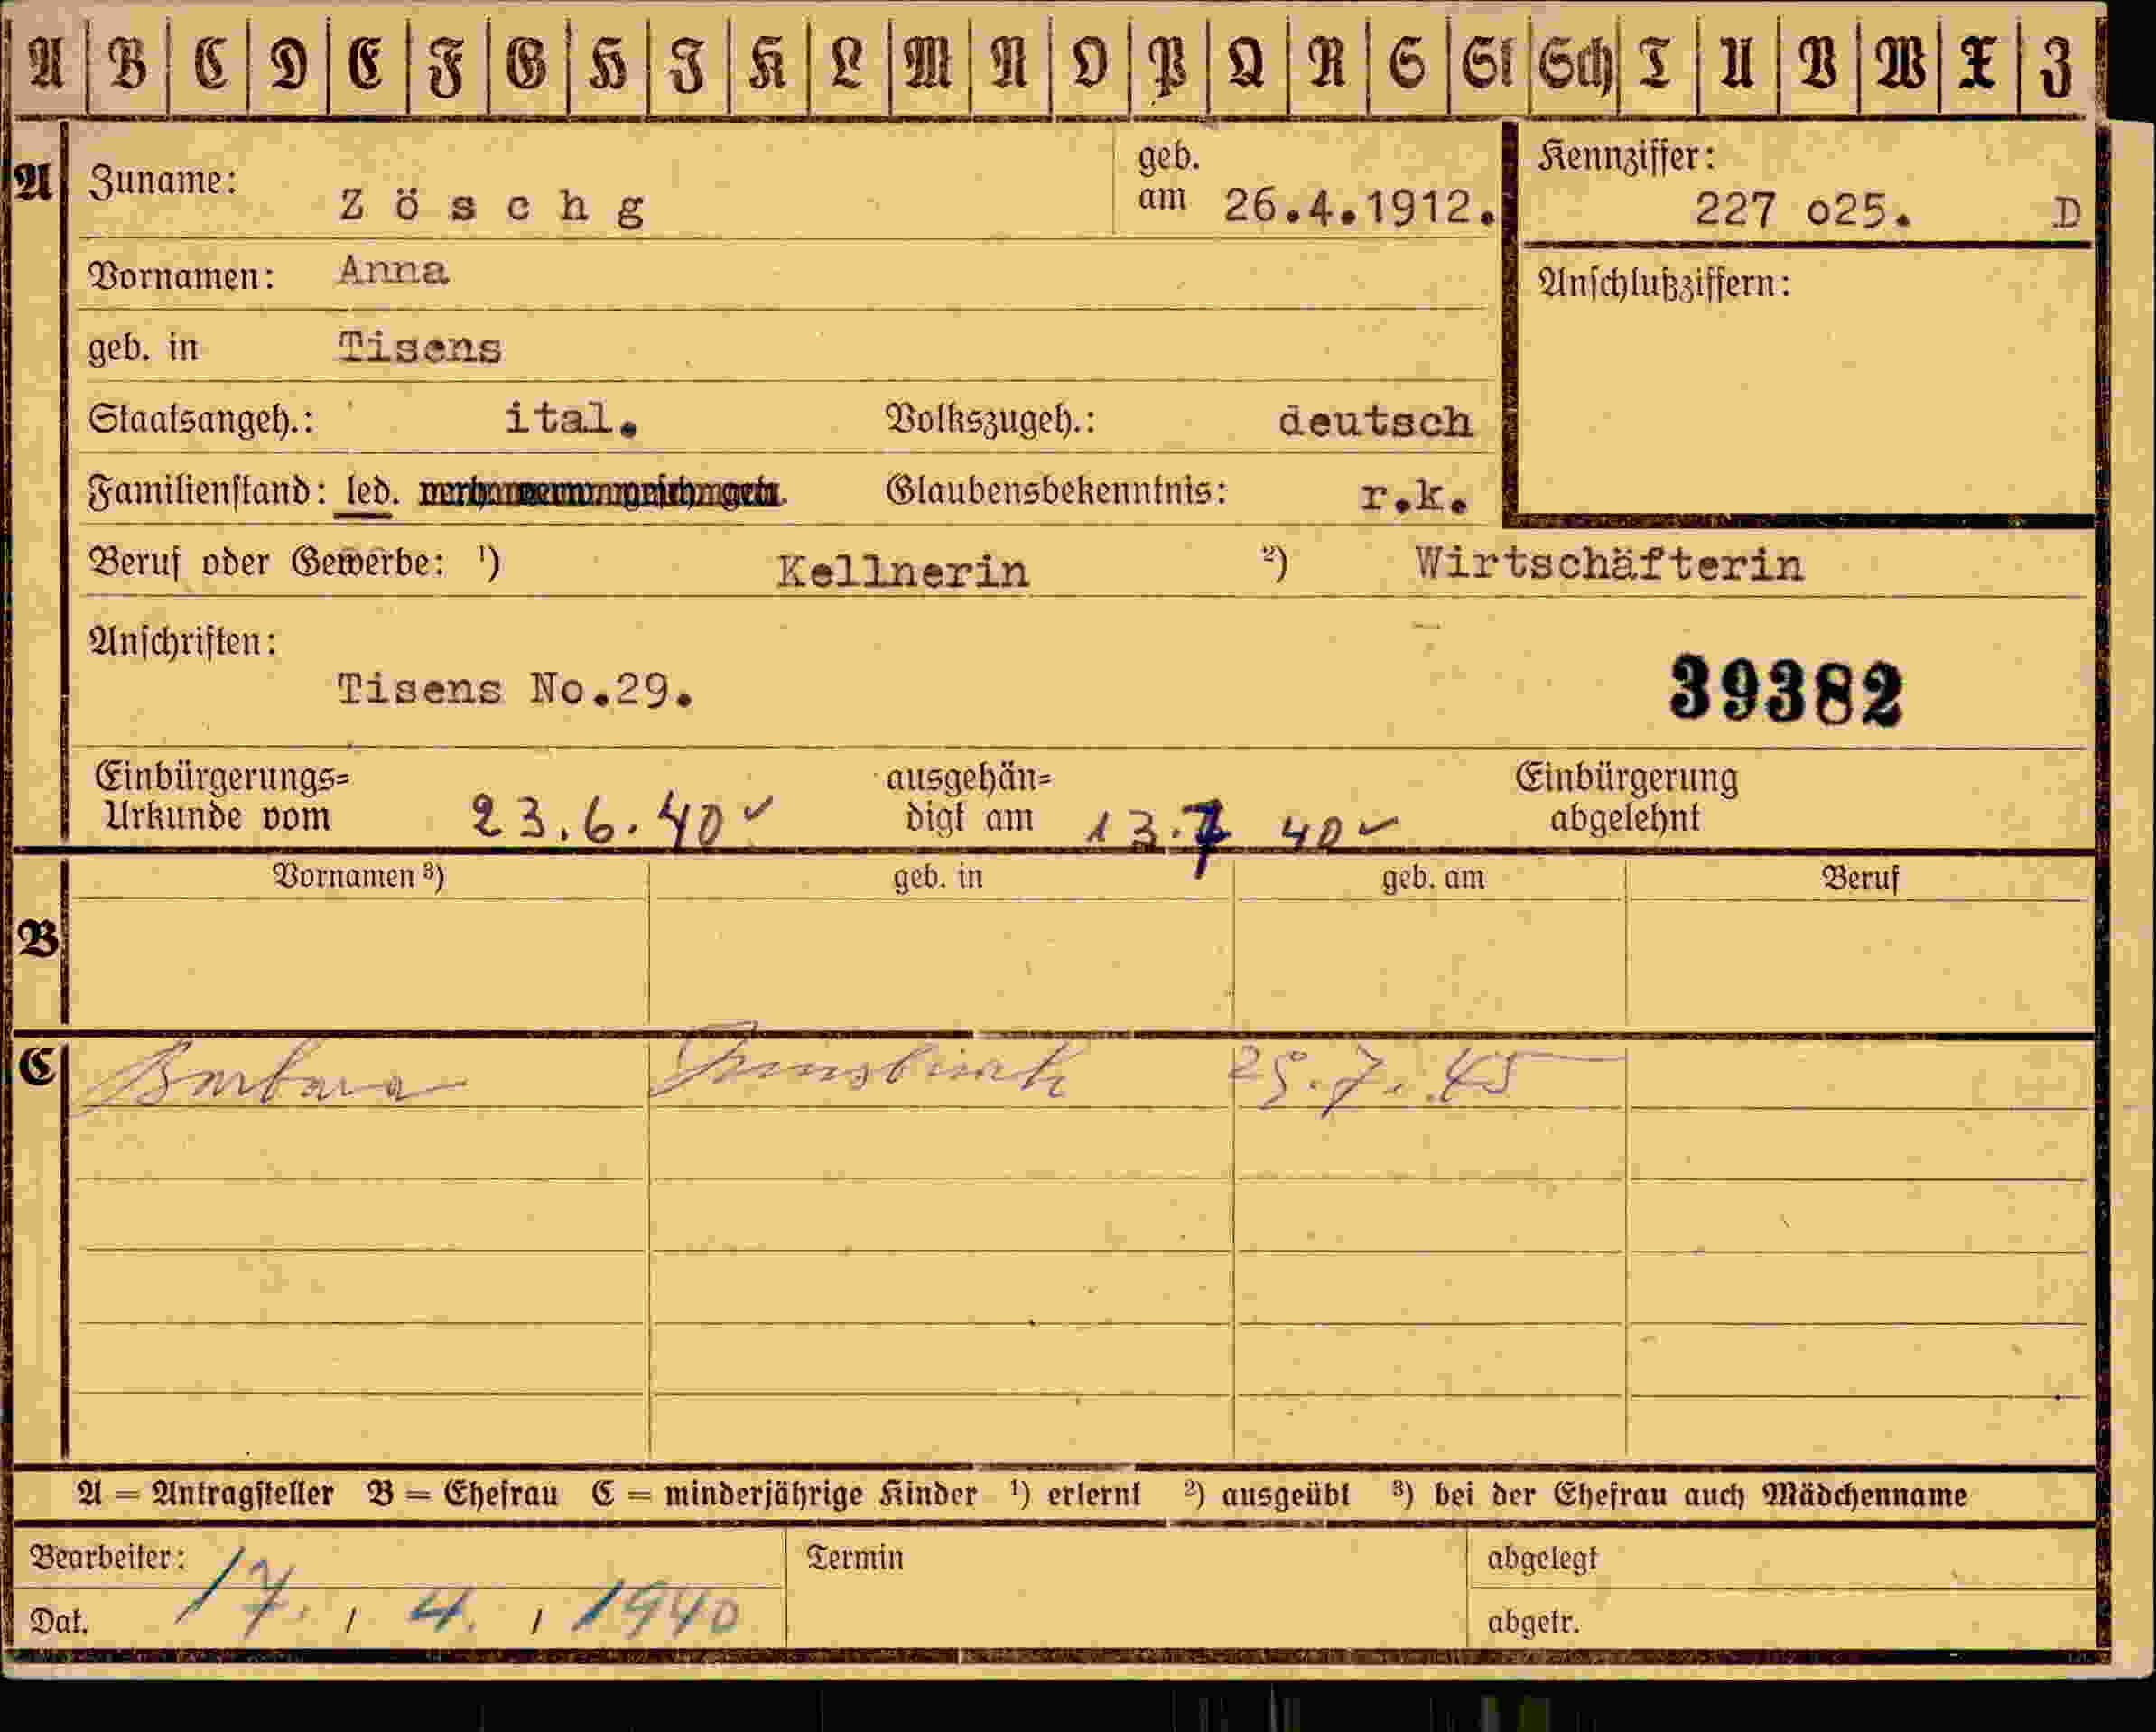 A B C D E F G H I K L M N O P Q R S St Sch T U V W X Z
A Zuname: Zöschg geb. am 26.4.1912. Kennziffer: 227 o25. D
Vornamen: Anna Anschlußziffern:
geb. in Tisens
Staatsangeh.: ital. Volkszugeh.: deutsch
Familienstand: led. Glaubensbekenntnis: r.k.
Beruf oder Gewerbe: ¹) Kellnerin ²) Wirtschäfterin
Anschriften:
Tisens No.29. 39382
Einbürgerungs= ausgehän= Einbürgerung
Urkunde vom 23.6.40 ✓ digt am 13.7 40 ✓ abgelehnt
Vornamen ³) geb. in geb. am Beruf
B
C Barbara Innsbruck 25.7.45
A = Antragsteller B = Ehefrau C = minderjährige Kinder ¹) erlernt ²) ausgeübt ³) bei der Ehefrau auch Mädchenname
Bearbeiter: Termin abgelegt
Dat. 17. / 4. / 1940 abgetr.